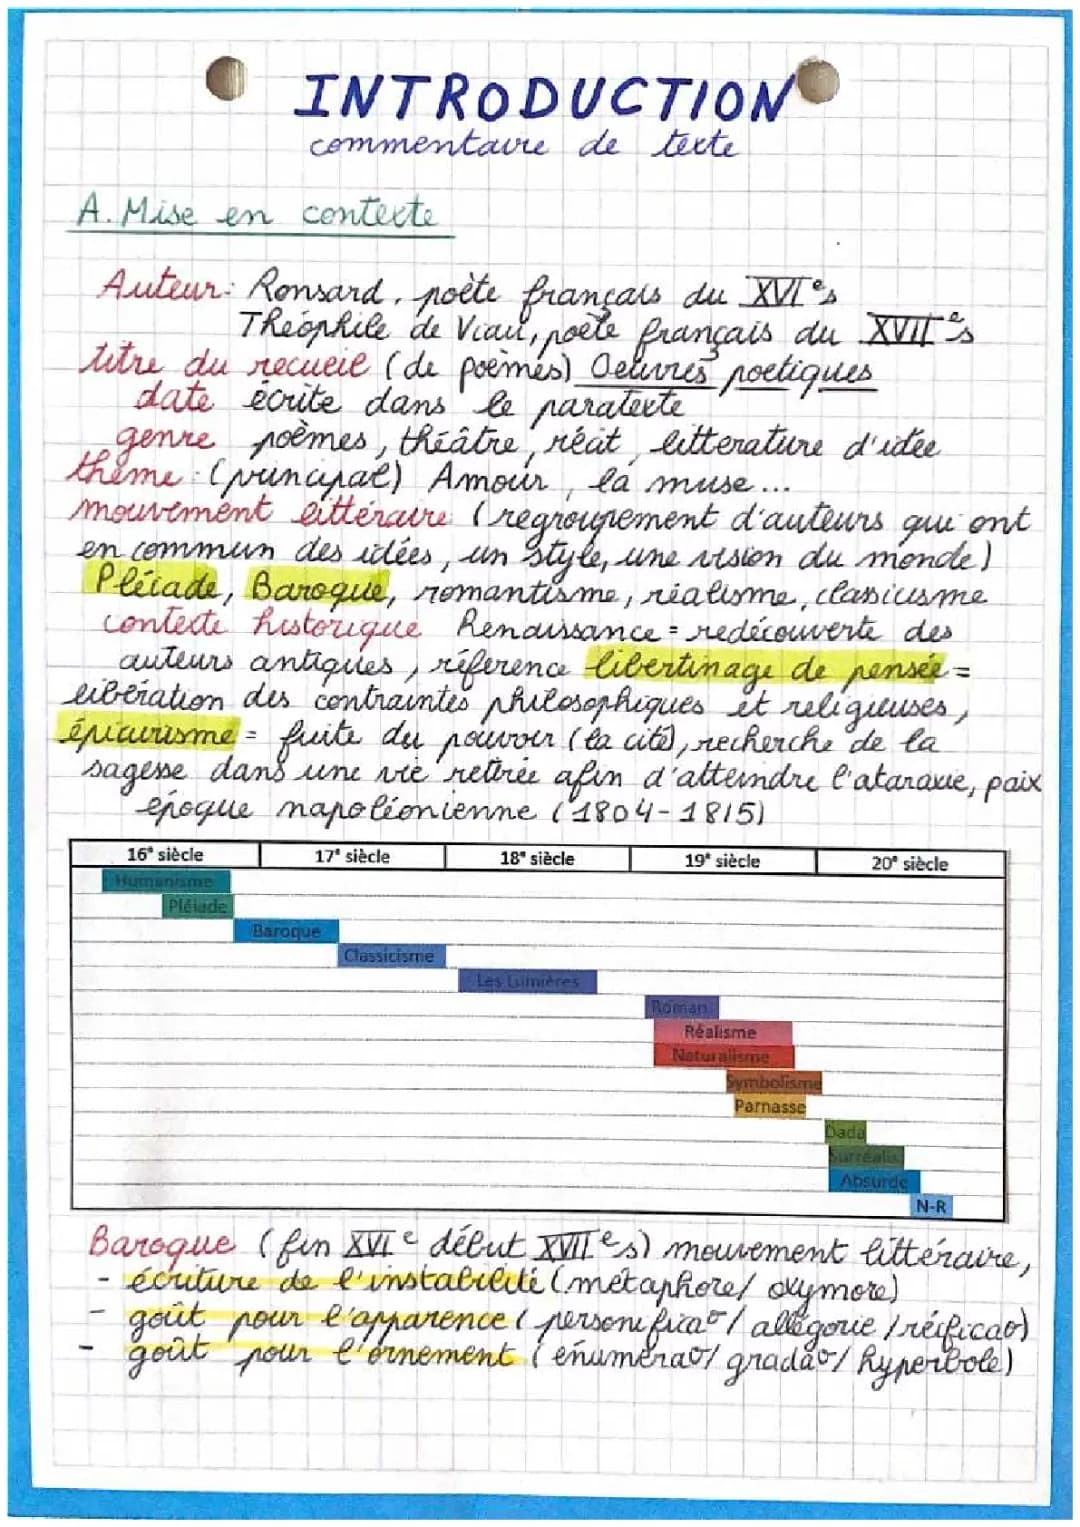 INTRODUCTION
commentaire de texte
A. Mise en contexte
Auteur: Ronsard, poète français du XVIᵉs
Théophile de Viau, poète français du XVIIᵉs
titre du recueil (de poèmes) Oeuvres poetiques
date écrite dans le paratexte
genre poèmes, théâtre, récit, litterature d'idée
thème: (principal) Amour, la muse...
mouvement littéraire (regroupement d'auteurs qui ont
en commun des idées, un style, une vision du monde)
Pléiade, Baroque, romantisme, réalisme, classicisme
contexte historique Renaissance = redécouverte des
auteurs antiques, réference libertinage de pensée =
libération des contraintes philosophiques et religieuses,
épicurisme = fuite du pouvoir (la cité), recherche de la
sagesse dans une vie retirée afin d'atteindre l'ataraxie, paix
époque napoléonienne (1804-1815)
16ᵉ siècle 17ᵉ siècle 18ᵉ siècle 19ᵉ siècle 20ᵉ siècle
Humanisme
Pléiade
Baroque
Classicisme
Les Lumières
Roman
Réalisme
Naturalisme
Symbolisme
Parnasse
Dada
Surréalis
Absurde
N-R
Baroque (fin XVIᵉ début XVIIᵉs) mouvement littéraire,
- écriture de l'instabilité (métaphore/ oxymore)
- goût pour l'apparence (personificaº/ allégorie /réificaº)
- goût pour l'ornement (énuméraº/ gradaº/ hyperbole)